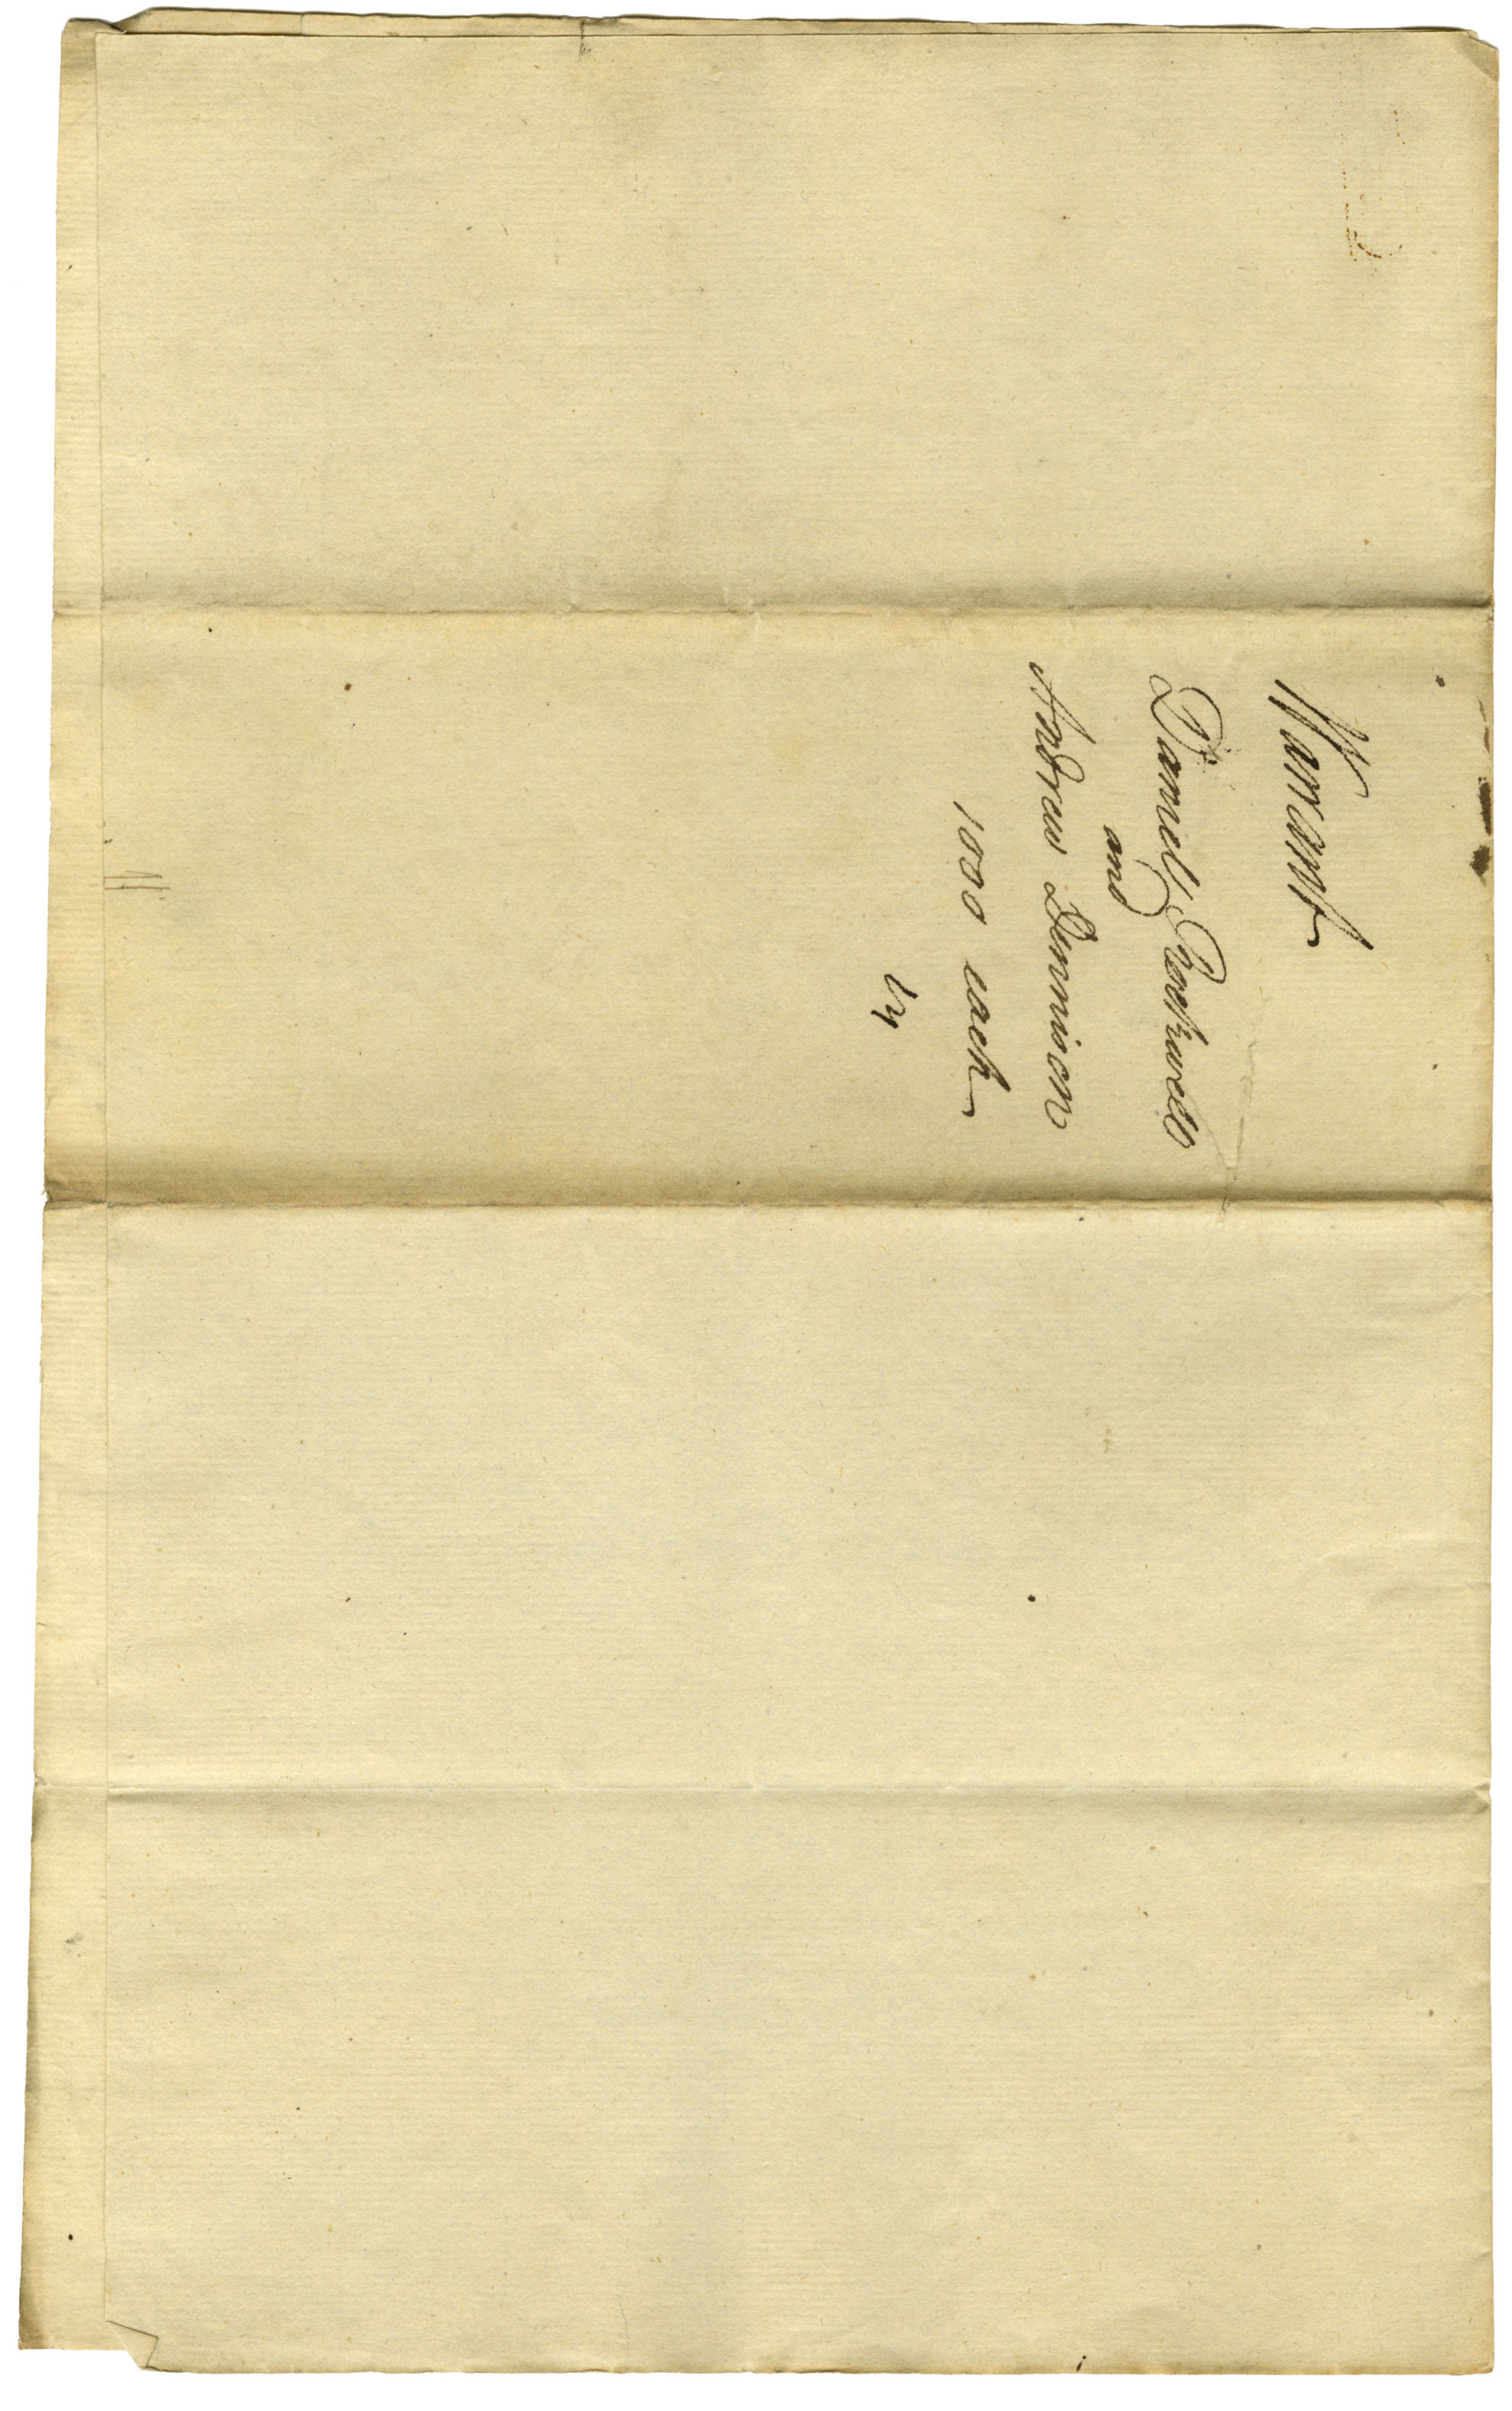 Warrant
Daniel Rockwell
and
Andrew Dennison
1000 each